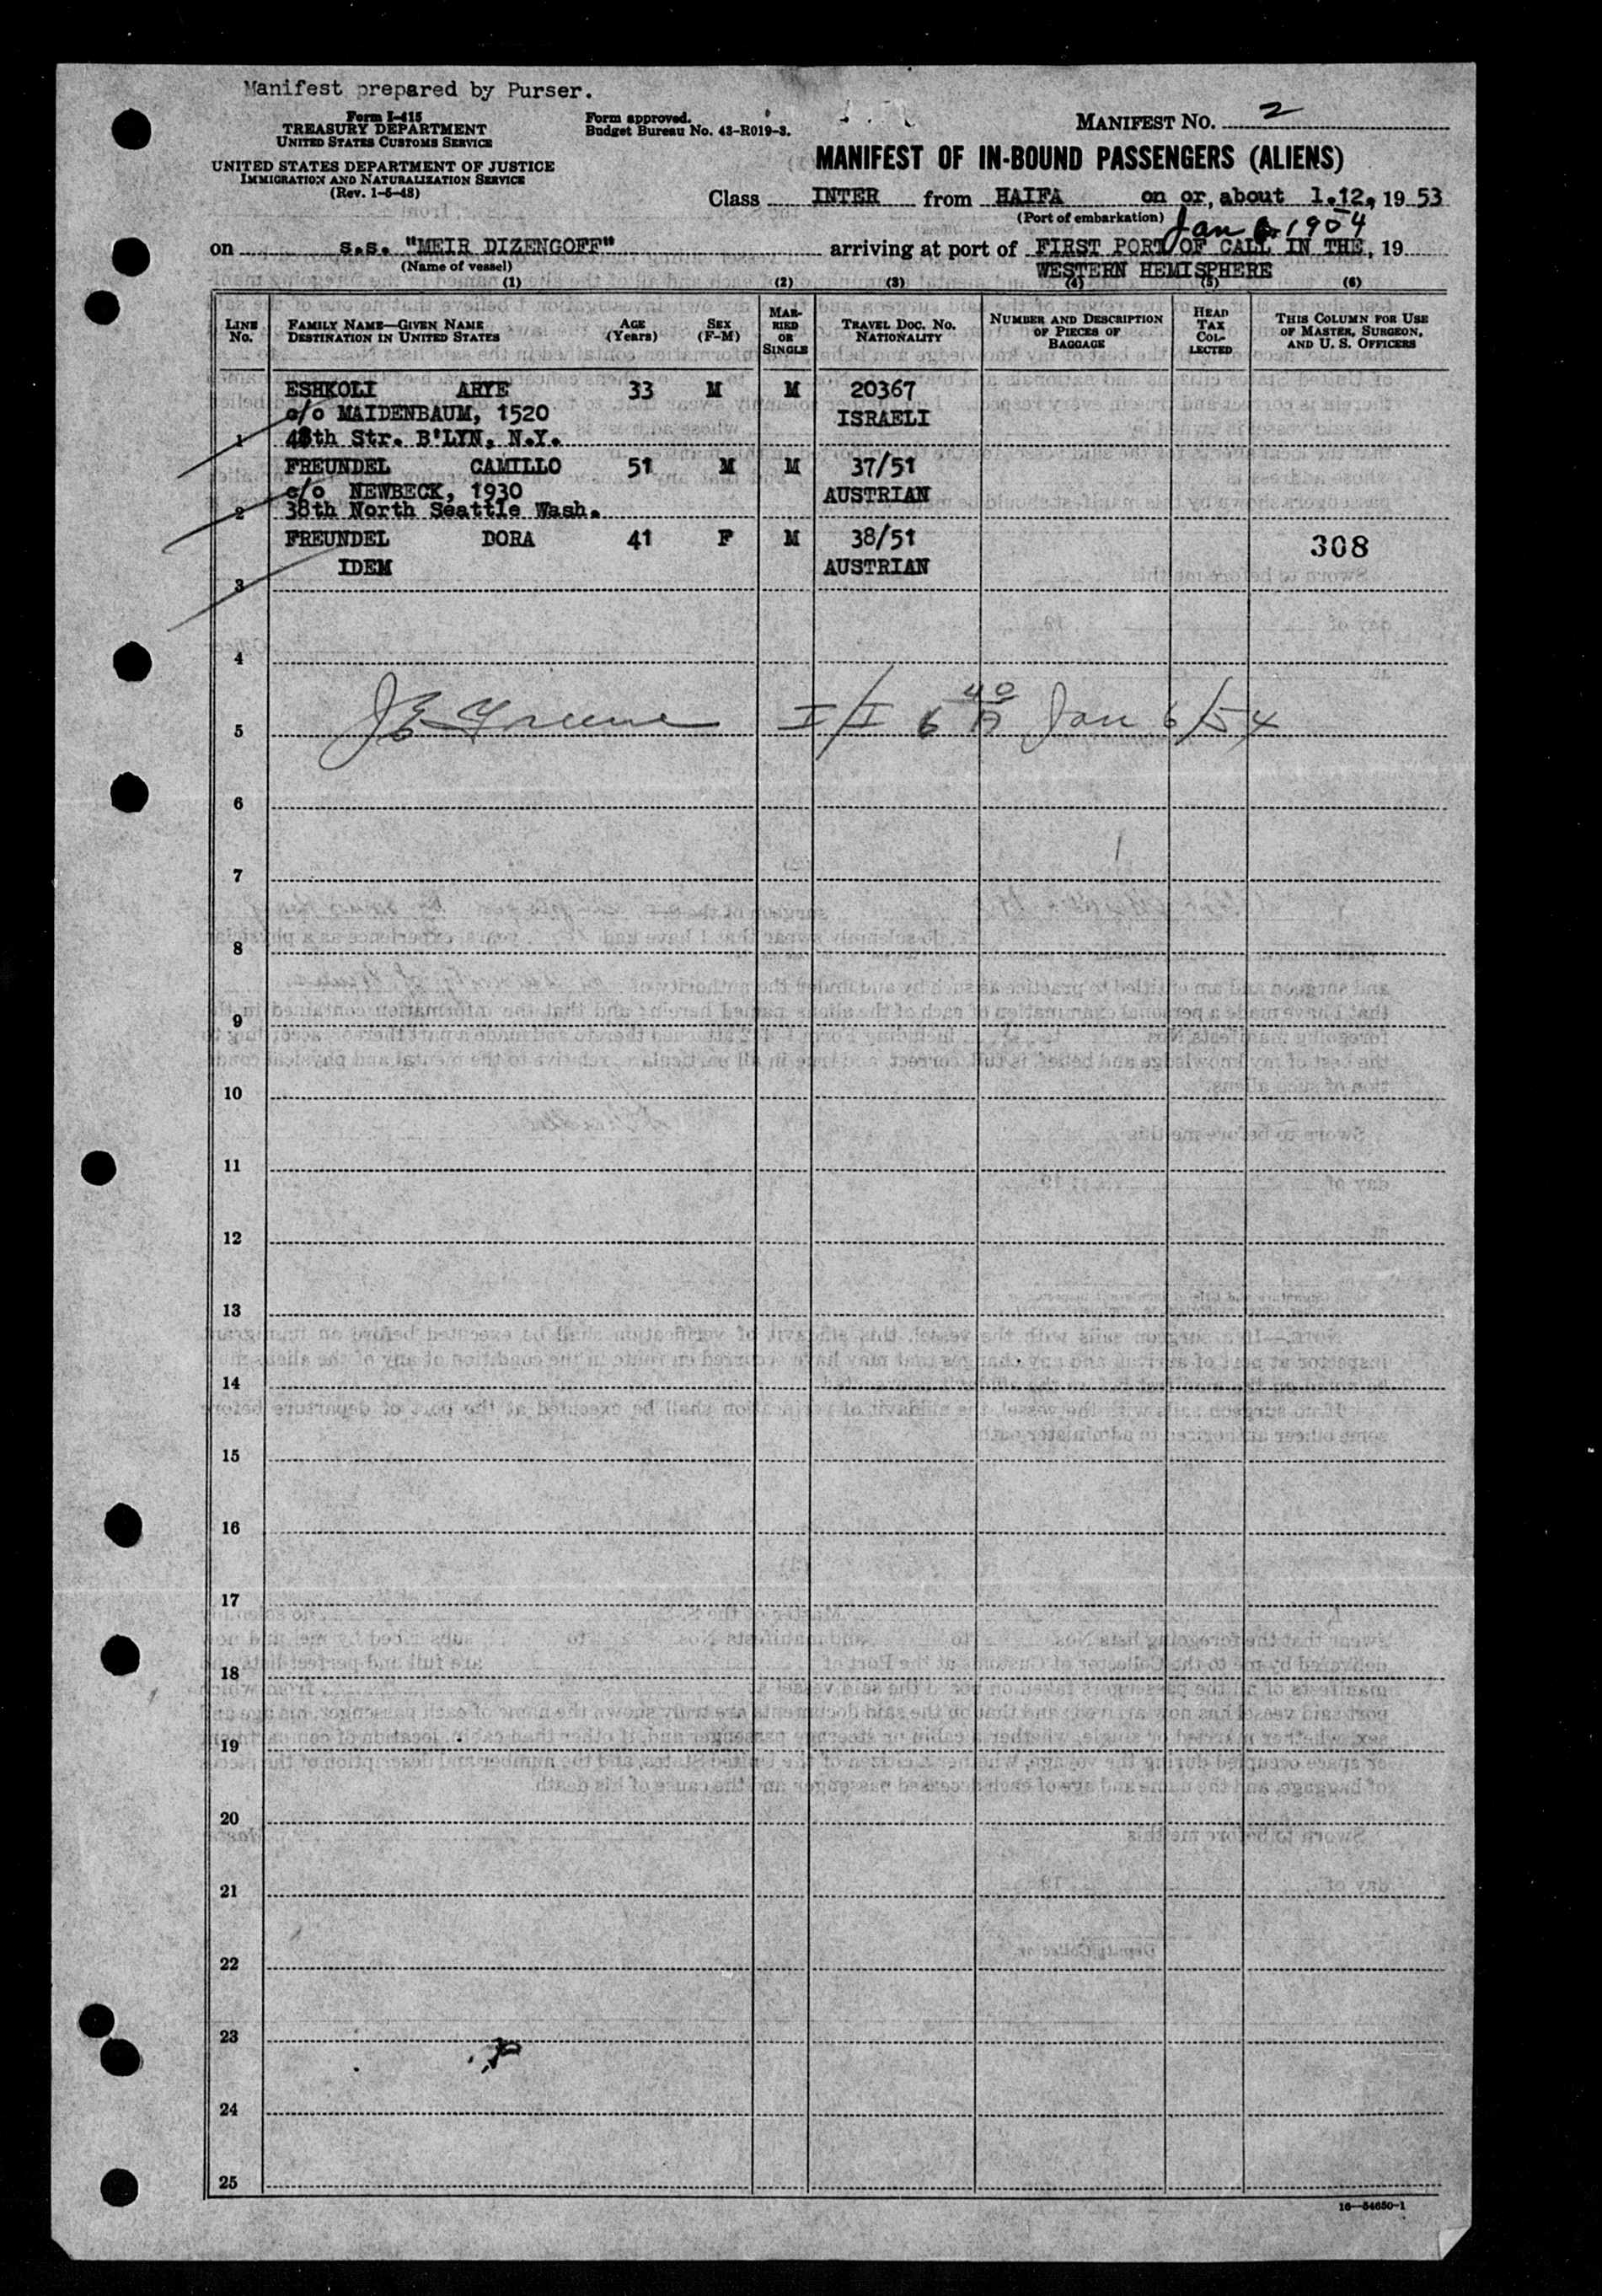 Manifest prepared by Purser.
Form I-415
TREASURY DEPARTMENT
UNITED STATES CUSTOMS SERVICE
UNITED STATES DEPARTMENT OF JUSTICE
IMMIGRATION AND NATURALIZATION SERVICE
(Rev. 1-5-48)
Form approved.
Budget Bureau No. 43-R019-3.
MANIFEST NO. 2
MANIFEST OF IN-BOUND PASSENGERS (ALIENS)
Class INTER from HAIFA on or, about 1.12, 19 53
(Port of embarkation)
Jan 6, 1954
on s.s. "MEIR DIZENGOFF" arriving at port of FIRST PORT OF CALL IN THE, 19
(Name of vessel) WESTERN HEMISPHERE
(1) (2) (3) (4) (5) (6)
LINE No. FAMILY NAME—GIVEN NAME DESTINATION IN UNITED STATES AGE (Years) SEX (F-M) MARRIED OR SINGLE TRAVEL DOC. NO. NATIONALITY NUMBER AND DESCRIPTION OF PIECES OF BAGGAGE HEAD TAX COLLECTED THIS COLUMN FOR USE OF MASTER, SURGEON, AND U. S. OFFICERS
ESHKOLI ARYE 33 M M 20367
c/o MAIDENBAUM, 1520 ISRAELI
1 48th Str. B'LYN, N.Y.
FREUNDEL CAMILLO 51 M M 37/51
c/o NEWBECK, 1930 AUSTRIAN
2 38th North Seattle Wash.
FREUNDEL DORA 41 F M 38/51 308
IDEM AUSTRIAN
3
4
5 J E Greene I/I 6 40 A Jan 6/54
6
7
8
9
10
11
12
13
14
15
16
17
18
19
20
21
22
23
24
25
16—54650-1